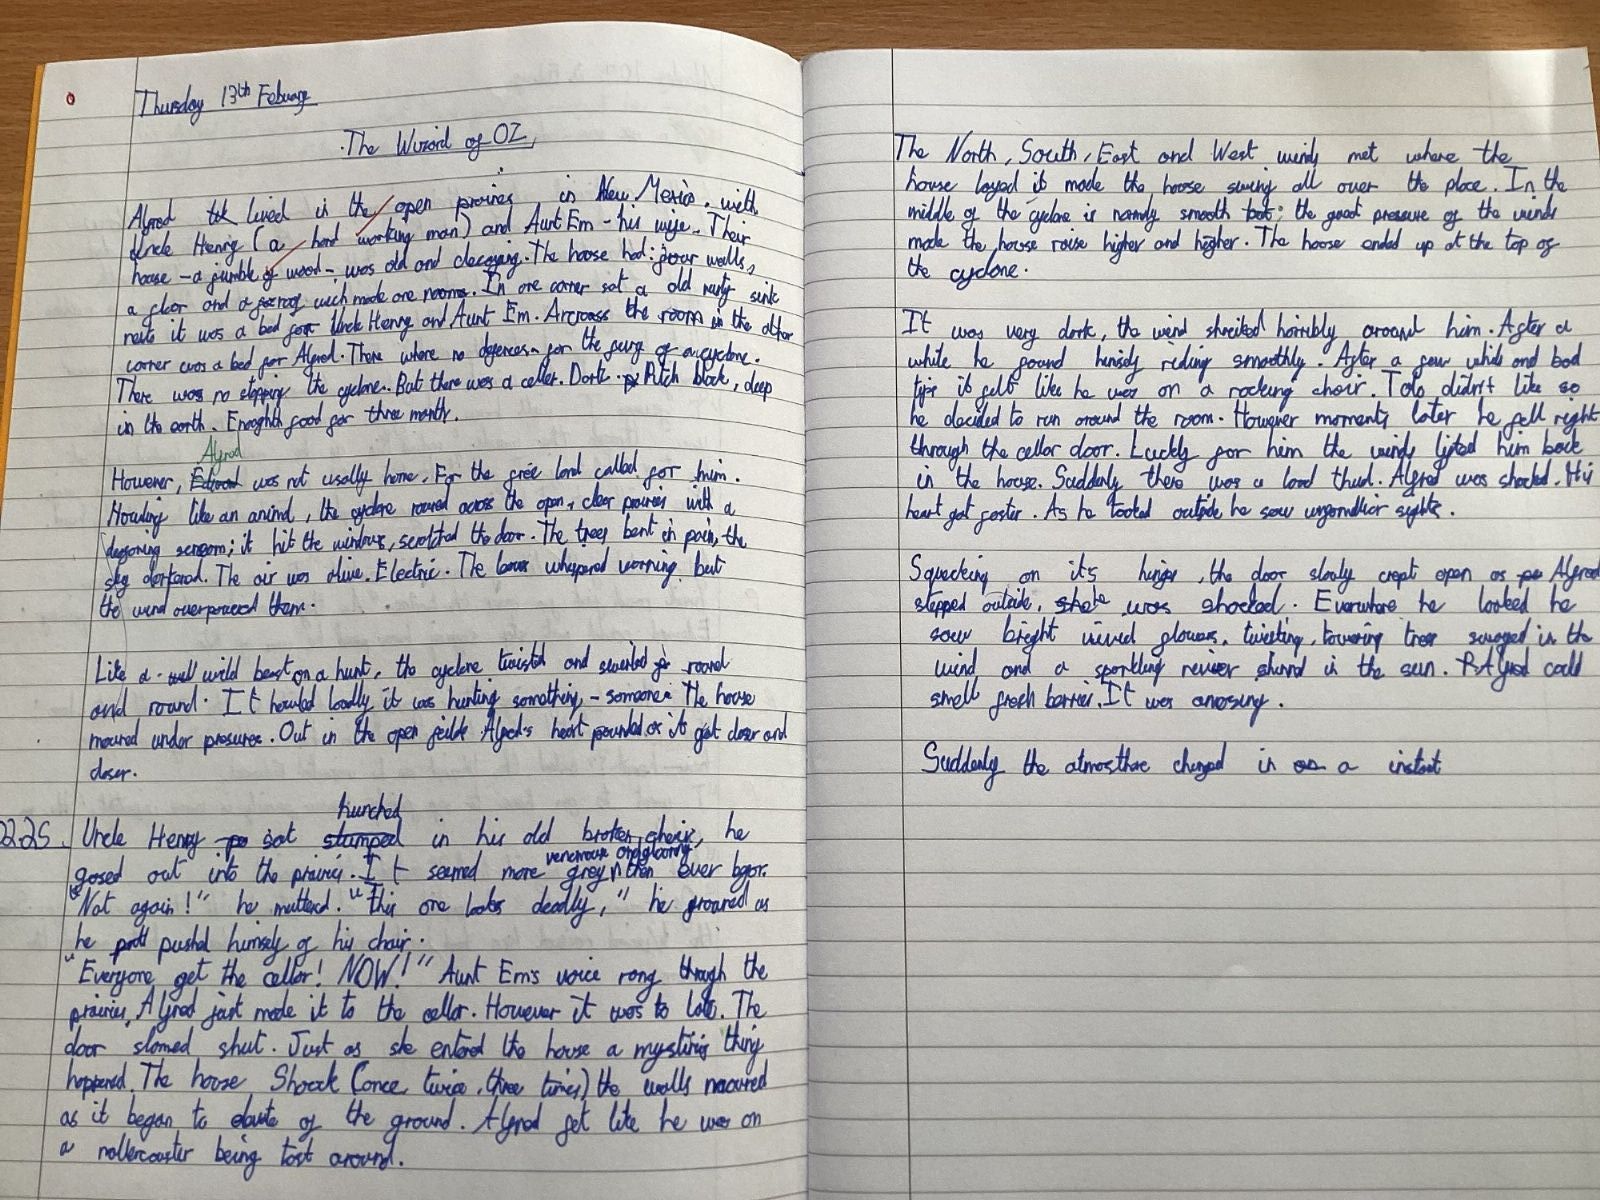 Thursday 13th Febuary
The Wizard of OZ
Alfred lived in the open prairies in New Mexico, with
Uncle Henry (a hard working man) and Aunt Em - his wife. Their
house - a jumble of wood - was old and decaying. The house had: four walls,
a floor and a roof wich made one rooms. In one corner sat a old rusty sink
nexts it was a bed for Uncle Henry and Aunt Em. Arcroass the room in the other
corner was a bed for Alfred. There where no defences for the fury of a cyclone.
There was no stopping the cyclone. But there was a celler. Dark. Pitch black, deep
in the earth. Enoghth food for three month.
Alfred
However, was not usally home. For the free land called for him.
Howling like an animal, the cyclone roared across the open, clear prairies with a
deafening scream; it hit the windows, scratched the door. The trees bent in pain, the
sky darkened. The air was alive. Electric. The whispered warning but
the wind overpowered them.
Like a wild beast on a hunt, the cyclone twisted and swirled round
and round. It howled loudly it was hunting something, - someone. The house
moured under presures. Out in the open feilds Alfred's heart pounded as it got closer and
closer.
hunched
2225. Uncle Henry sat stumped in his old broken chair, he
venemous and gloomy
gased out into the prairies. It seemed more grey then ever befor.
"Not again!" he mutterd. "this one looks deadly," he groaned as
he pushed himself of his chair.
"Everyone get the cellar! NOW!" Aunt Em's voice rang through the
prairies. Alfred just made it to the cellar. However it was to late. The
door slamed shut. Just as she enterd the house a mystiris thing
happened. The house Shoock (once, twice, three times) the walls moured
as it began to of the ground. Alfred felt like he was on
a rollercoaster being tost around.
The North, South, East and West winds met where the
house layed it made the house swing all over the place. In the
middle of the cyclone is normly smooth but; the great pressure of the winds
made the house raise higher and higher. The house ended up at the top of
the cyclone.
It was very dark, the wind shreiked horribly around him. After a
while he found himself riding smoothly. After a few whirls and bad
tips it felt like he was on a rocking chair. Toto didn't like so
he decided to run around the room. However moments later he fell right
through the cellar door. Luckly for him the winds lifted him back
in the house. Suddenly there was a loud thud. Alfred was shocked. His
heart got faster. As he looked outside he saw unfamilliar sights.
Squecking on its hinges, the door slowly crept open as Alfred
stepped outside, he was shocked. Everwhere he looked he
saw bright vived flowers, twisting, towering trees swayed in the
wind and a sparkling reviver shinnd in the sun. Alfred could
smell fresh berries. It was amazing.
Suddenly the atmosthare changed in a instant